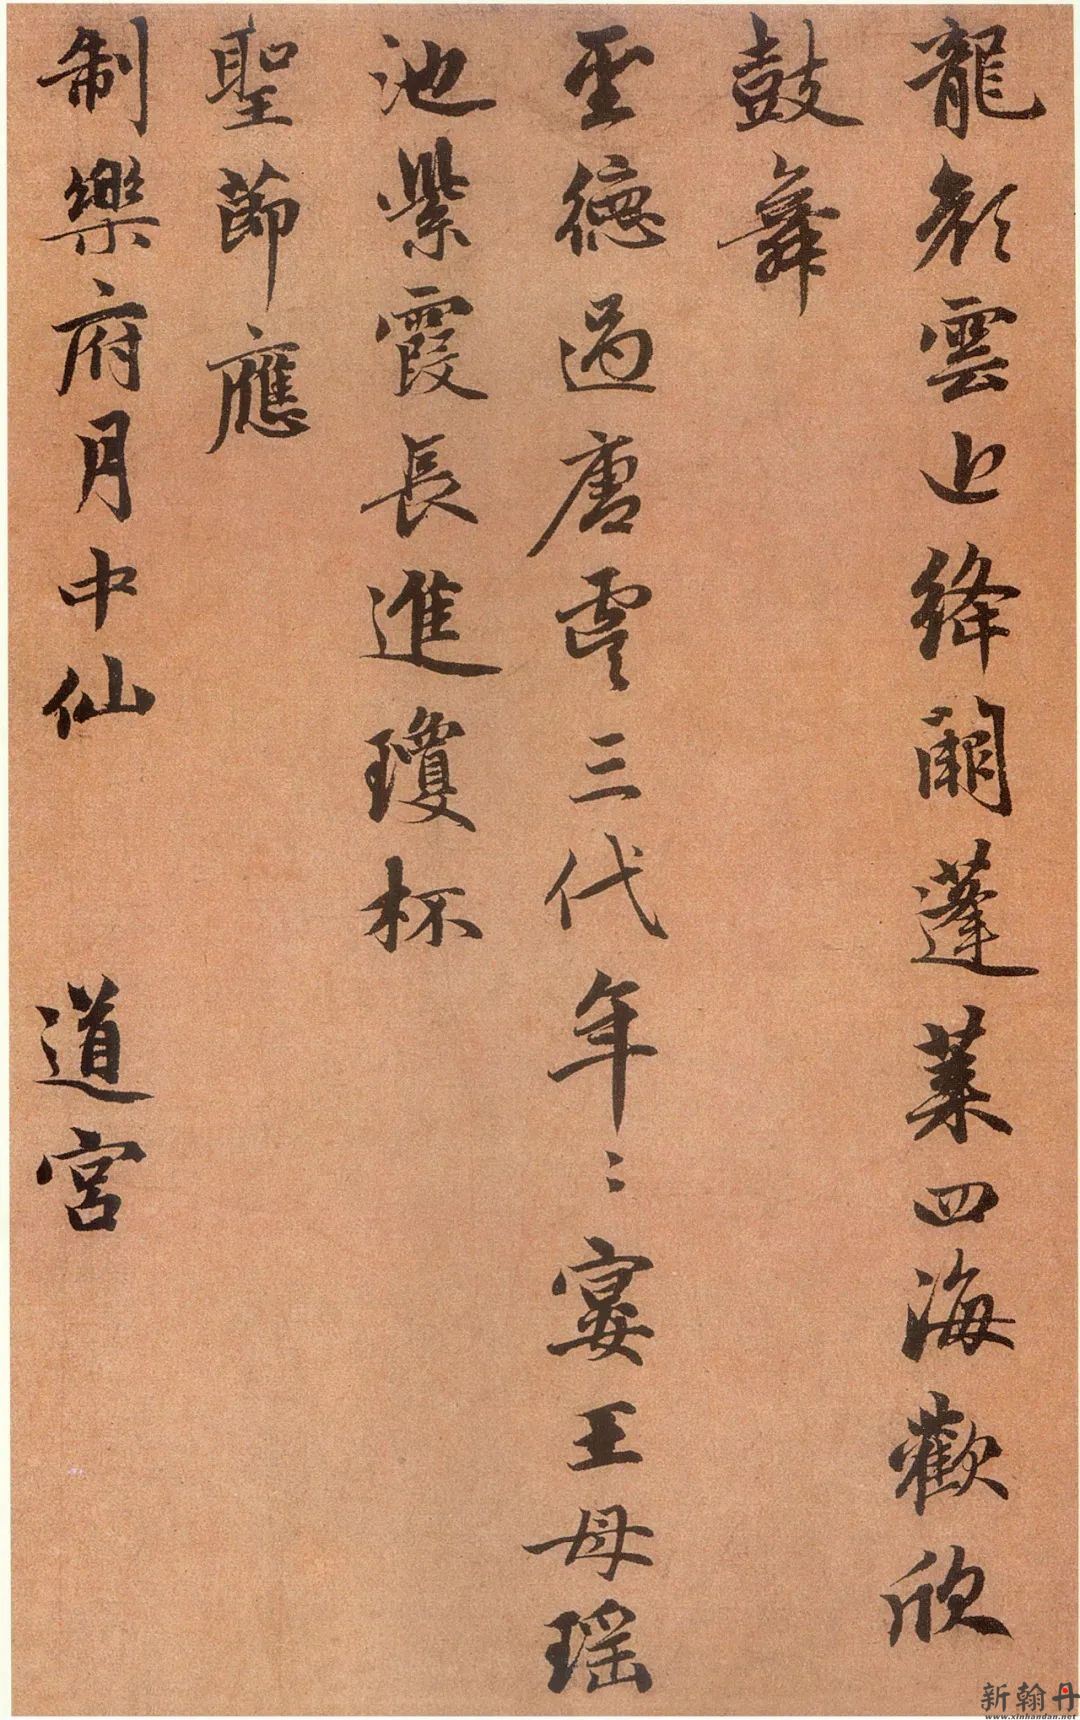 龍顔雲上絳闕蓬萊四海歡欣
鼓舞
聖德過唐虞三代年〻宴王母瑶
池紫霞長進瓊杯
聖節應
制樂府月中仙 道宮
新翰丹
www.xinhandan.net